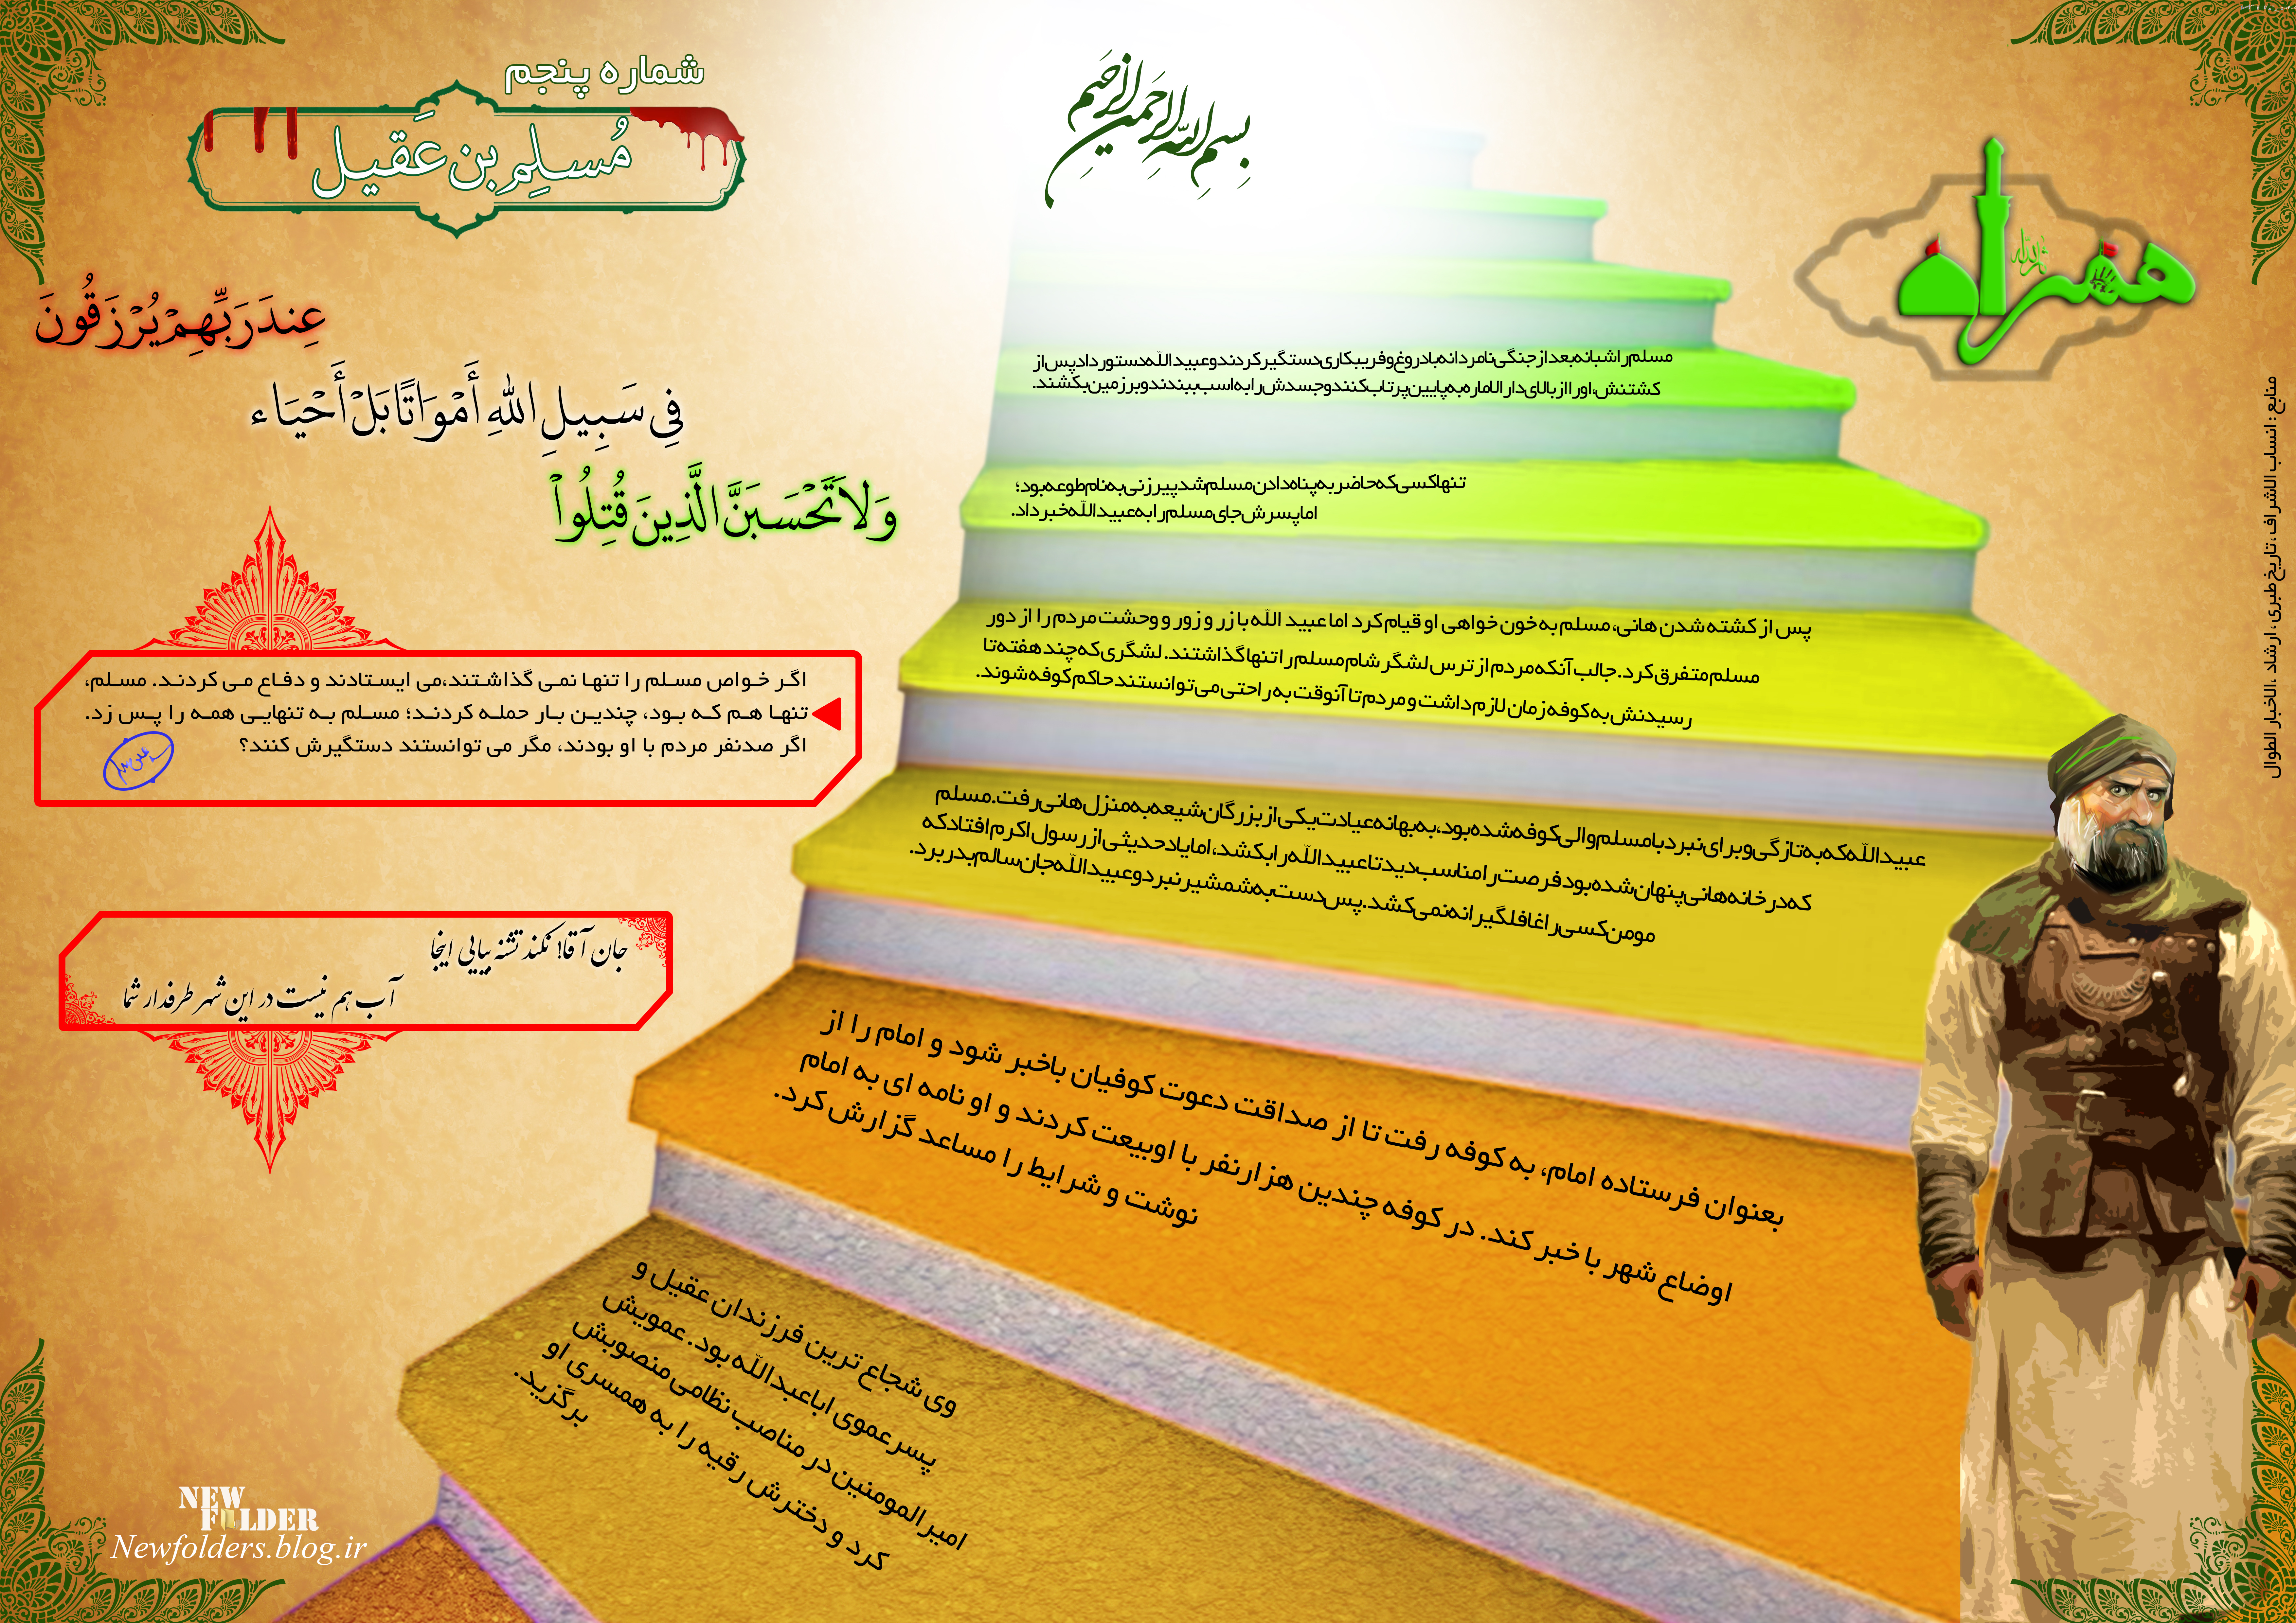 بِسمِ اللهِ الرَّحمنِ الرَّحیمِ
شماره پنجم
مُسلِم بن عَقیل
عِندَ رَبِّهِمْ یُرْزَقُونَ
فِی سَبِیلِ اللهِ أَمْوَاتًا بَلْ أَحْیَاء
وَلاَ تَحْسَبَنَّ الَّذِینَ قُتِلُواْ
همراه
منابع : انساب الاشراف، تاریخ طبری، ارشاد، الاخبار الطوال
مسلم را شبانه بعد از جنگی نامردانه با دروغ و فریبکاری دستگیر کردند و عبید الله دستور داد پس از
کشتنش، او را از بالای دار الاماره به پایین پرتاب کنند و جسدش را به اسب ببندند و بر زمین بکشند.
تنها کسی که حاضر به پناه دادن مسلم شد پیرزنی به نام طوعه بود؛
اما پسرش جای مسلم را به عبید الله خبر داد.
پس از کشته شدن هانی، مسلم به خون خواهی او قیام کرد اما عبید الله با زر و زور و وحشت مردم را از دور
مسلم متفرق کرد. جالب آنکه مردم از ترس لشگر شام مسلم را تنها گذاشتند. لشگری که چند هفته تا
رسیدنش به کوفه زمان لازم داشت و مردم تا آنوقت به راحتی می توانستند حاکم کوفه شوند.
عبید الله که به تازگی و برای نبرد با مسلم والی کوفه شده بود، به بهانه عیادت یکی از بزرگان شیعه به منزل هانی رفت. مسلم
که در خانه هانی پنهان شده بود فرصت را مناسب دید تا عبید الله را بکشد، اما یاد حدیثی از رسول اکرم افتاد که
مومن کسی را غافلگیرانه نمی کشد. پس دست به شمشیر نبرد و عبید الله جان سالم بدر برد.
بعنوان فرستاده امام، به کوفه رفت تا از صداقت دعوت کوفیان باخبر شود و امام را از
اوضاع شهر با خبر کند. در کوفه چندین هزارنفر با اوبیعت کردند و او نامه ای به امام
نوشت و شرایط را مساعد گزارش کرد.
وی شجاع ترین فرزندان عقیل و
پسر عموی اباعبدالله بود. عمویش
امیر المومنین در مناصب نظامی منصوبش
کرد و دخترش رقیه را به همسری او
برگزید.
اگر خواص مسلم را تنها نمی گذاشتند،می ایستادند و دفاع می کردند. مسلم،
تنها هم که بود، چندین بار حمله کردند؛ مسلم به تنهایی همه را پس زد.
اگر صدنفر مردم با او بودند، مگر می توانستند دستگیرش کنند؟
جان آقا! نکند تشنه بیایی اینجا
آب هم نیست در این شهر طرفدار شما
NEW
FOLDER
Newfolders.blog.ir